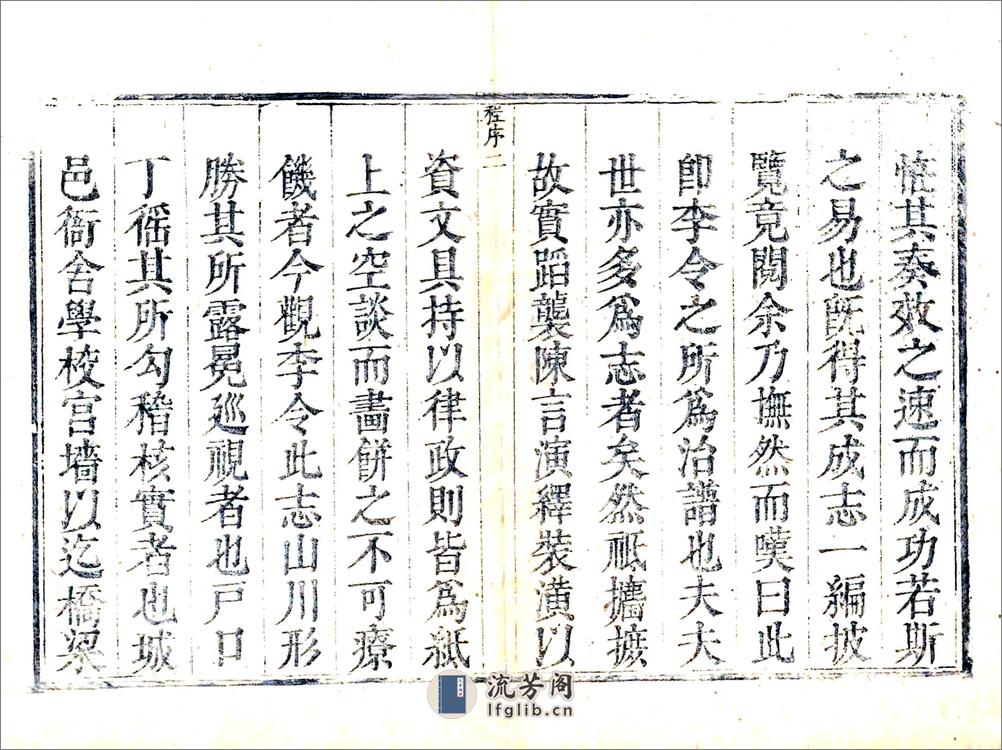 怪其奏效之速而成功若斯
之易也既得其成志一編披
覽竟閱余乃撫然而嘆曰此
卽李令之所爲治譜也夫夫
世亦多爲志者矣然祗攟摭
故實蹈襲陳言演繹裝潢以
程序二
資文具持以律政則皆爲紙
上之空談而畵餅之不可療
饑者今觀李令此志山川形
勝其所露冕廵視者也戸口
丁徭其所勾稽核實者也城
邑衙舍學校宫墻以迄橋梁
流芳阁
lfglib.cn